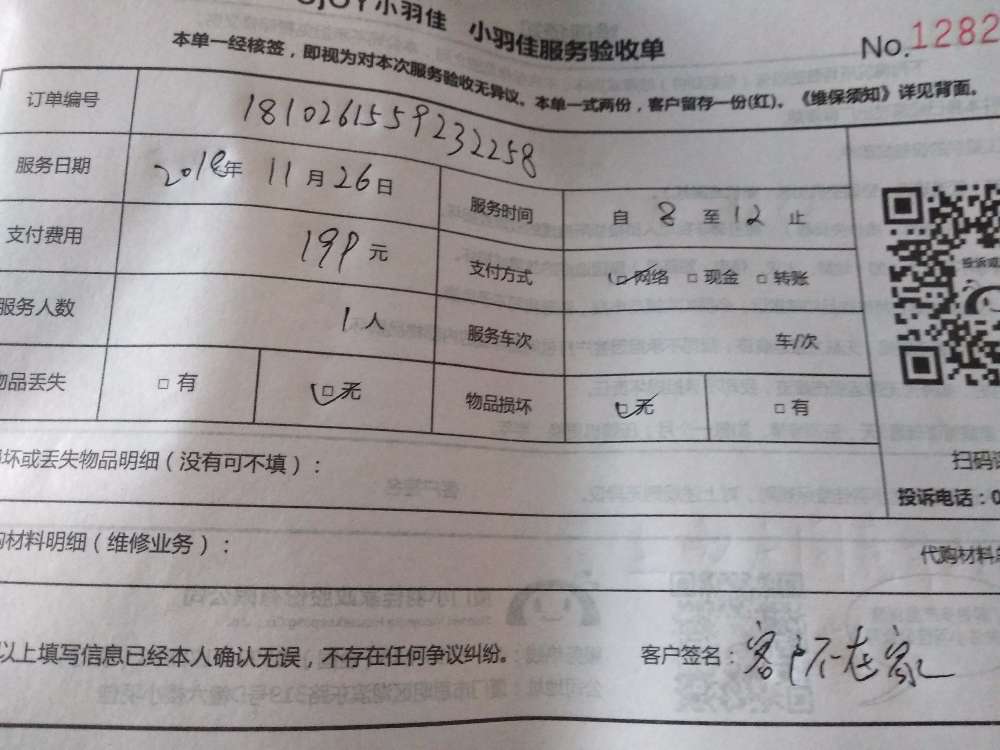 小羽佳 小羽佳服务验收单
No.1282
本单一经核签，即视为对本次服务验收无异议。本单一式两份，客户留存一份(红)。《维保须知》详见背面。
订单编号 1810261559232258
服务日期 2018年 11月26日 服务时间 自 8 至12 止
支付费用 199元 支付方式 □网络 □现金 □转账
服务人数 1人 服务车次 车/次
物品丢失 □有 □无 物品损坏 □无 □有
坏或丢失物品明细（没有可不填）：
扫码
投诉电话：0
材料明细（维修业务）：
代购材料
以上填写信息已经本人确认无误，不存在任何争议纠纷。 客户签名：客户不在家